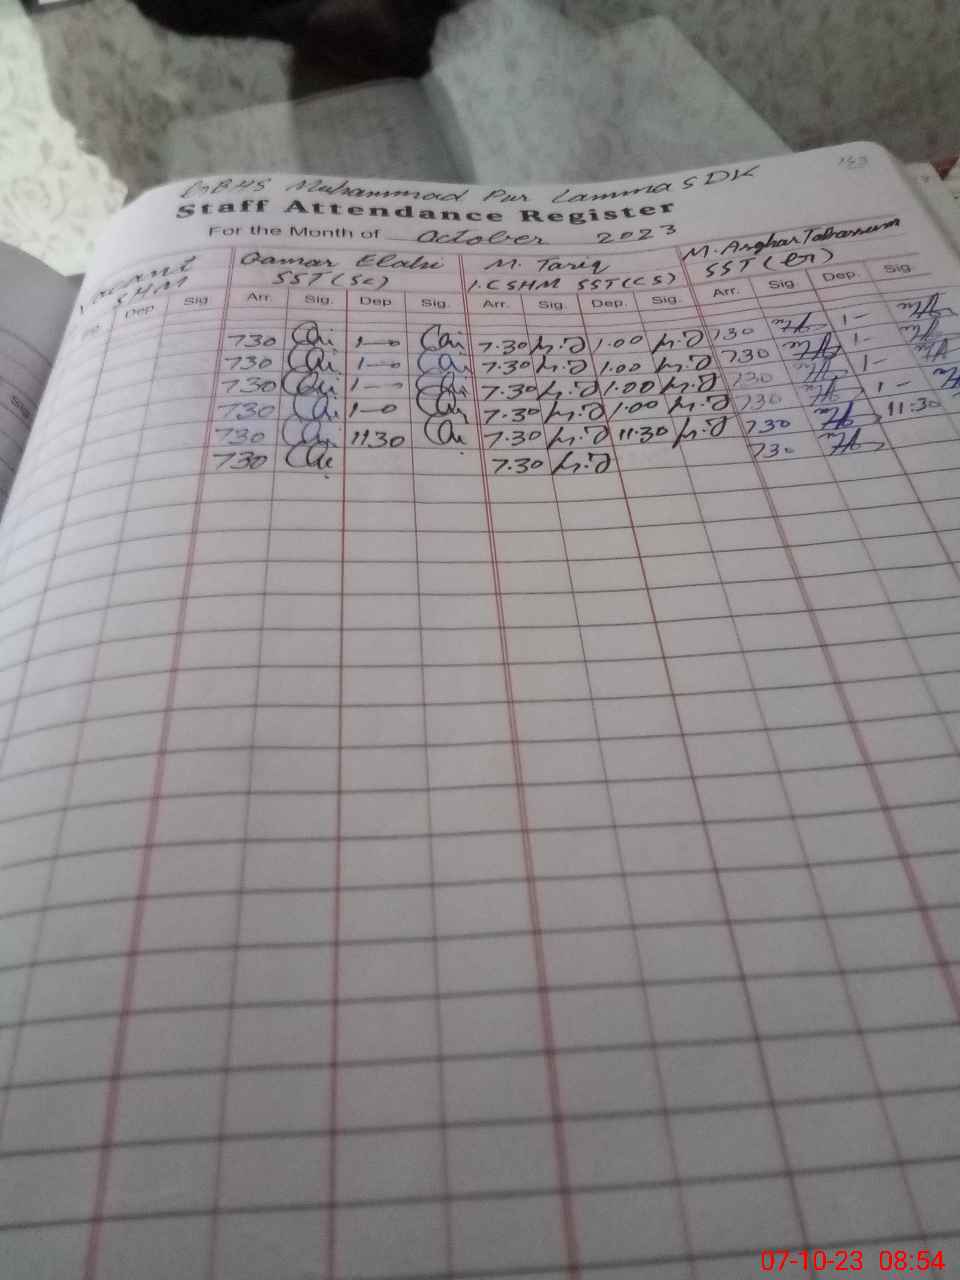 GBHS Muhammad Pur Lamma SDK
Staff Attendance Register
For the Month of October 2023
Vacant Qamar Elahi M. Tariq M. Asghar Tabassum
SHM SST (Sc) I.C SHM SST (CS) SST (
Dep. Sig Arr. Sig. Dep Sig. Arr. Sig. Dep. Sig. Arr. Sig. Dep. Sig.
730 1-0 7.30 1.00 730 1-
730 1-0 7.30 1.00 730 1-
730 1-0 7.30 1.00 730 1-
730 1-0 7.30 1.00 730 1-
730 11.30 7.30 11.30 730 11:30
730 7.30 730
07-10-23 08:54